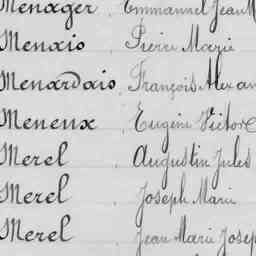 Menager, Emmanuel Jean M
Menaxio, Pierre Marie
Menardais, François Alexan
Meneux, Eugène Victor
Merel, Augustin Jules
Merel, Joseph Marie
Merel, Jean Marie Josep